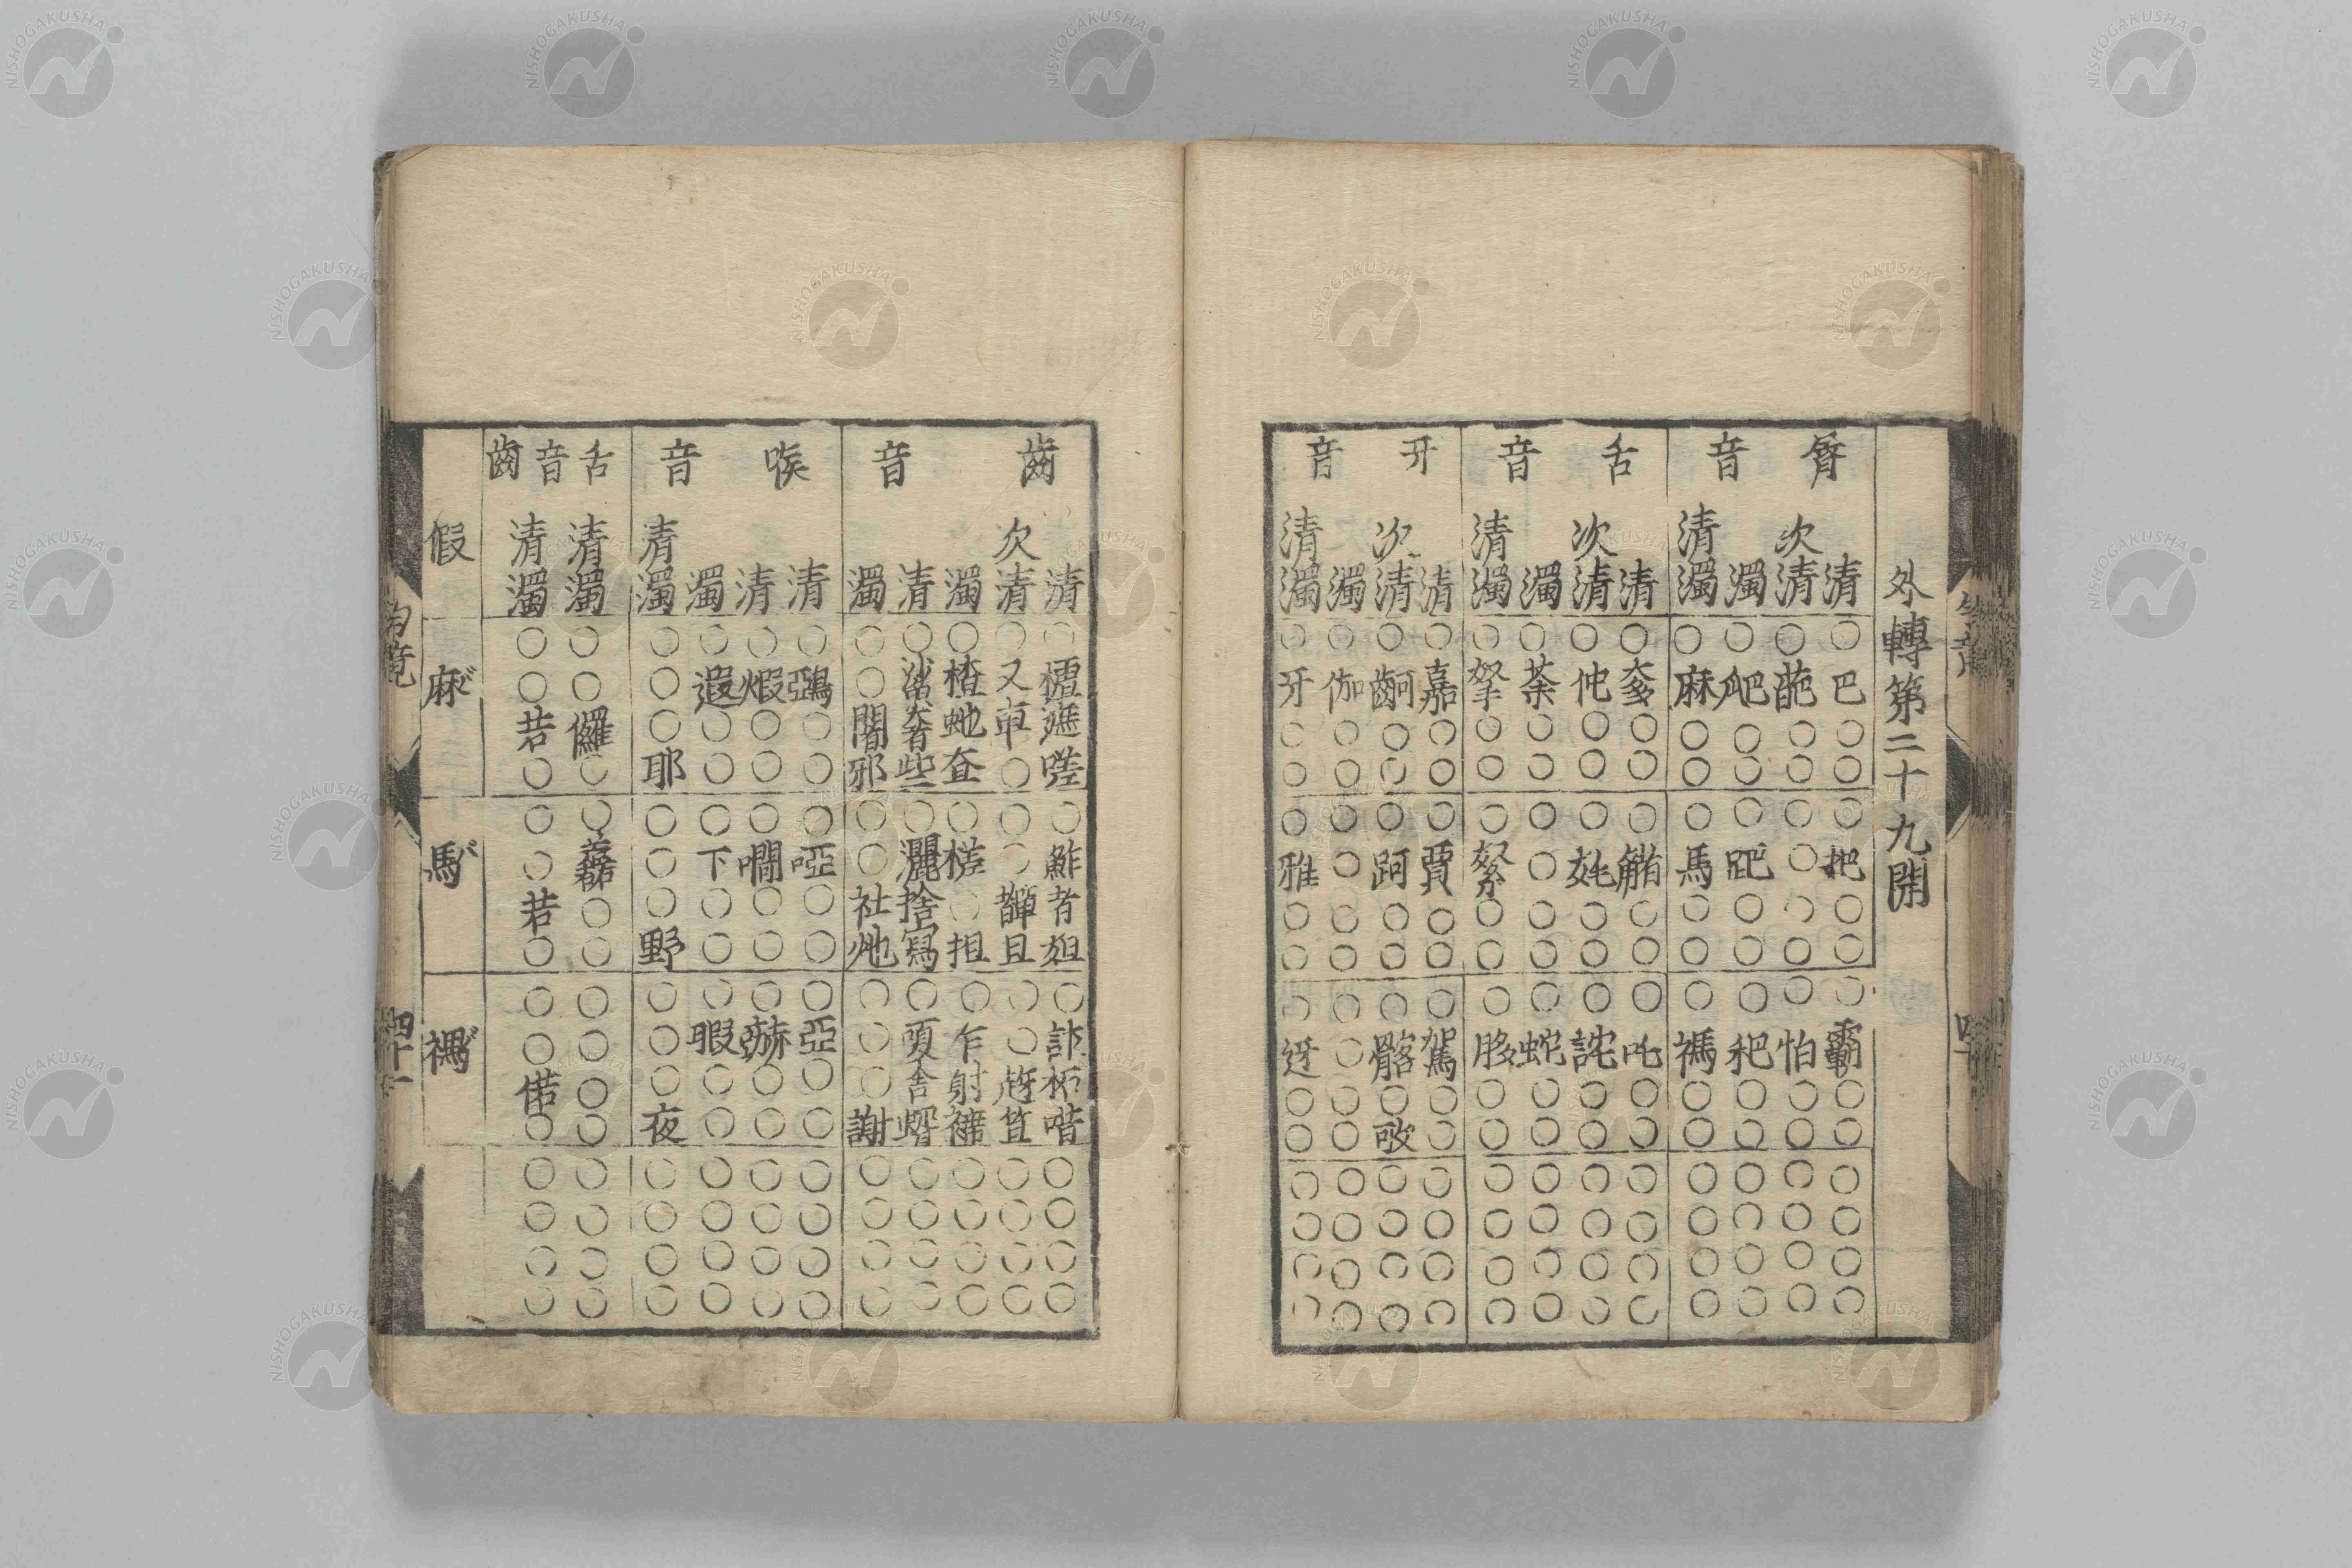 外轉第二十九開
脣音 舌音 牙音
清 ○巴○○ ○把○○ ○霸○○ ○○○○
次清 ○葩○○ ○○○○ ○怕○○ ○○○○
濁 ○爬○○ ○跁○○ ○䎬○○ ○○○○
清濁 ○麻○○ ○馬○○ ○禡○○ ○○○○
清 ○奓○○ ○觰○○ ○吒○○ ○○○○
次清 ○㐌○○ ○奼○○ ○詫○○ ○○○○
濁 ○荼○○ ○○○○ ○蛇○○ ○○○○
清濁 ○拏○○ ○絮○○ ○䏧○○ ○○○○
清 ○嘉○○ ○賈○○ ○駕○○ ○○○○
次清 ○齖○○ ○跒○○ ○髂○㰤 ○○○○
濁 ○伽○○ ○○○○ ○○○○ ○○○○
清濁 ○牙○○ ○雅○○ ○迓○○ ○○○○
齒音 喉音 舌音齒
清 ○樝遮嗟 ○鮓者姐 ○詐柘唶 ○○○○
次清 ○叉車○ ○○奲且 ○○赿笡 ○○○○
濁 ○楂虵査 ○槎○抯 ○乍射褯 ○○○○
清 ○鯊奢些 ○灑捨寫 ○嗄舍蝑 ○○○○
濁 ○○闍邪 ○○社灺 ○○○謝 ○○○○
清 ○鵶○○ ○啞○○ ○亞○○ ○○○○
清 ○煆○○ ○㗇○○ ○嚇○○ ○○○○
濁 ○遐○○ ○下○○ ○暇○○ ○○○○
清濁 ○○○耶 ○○○野 ○○○夜 ○○○○
清濁 ○○儸○ ○藞○○ ○○○○ ○○○○
清濁 ○○若○ ○○若○ ○○偌○ ○○○○
假 麻 馬 禡
四十一
NISHOGAKUSHA